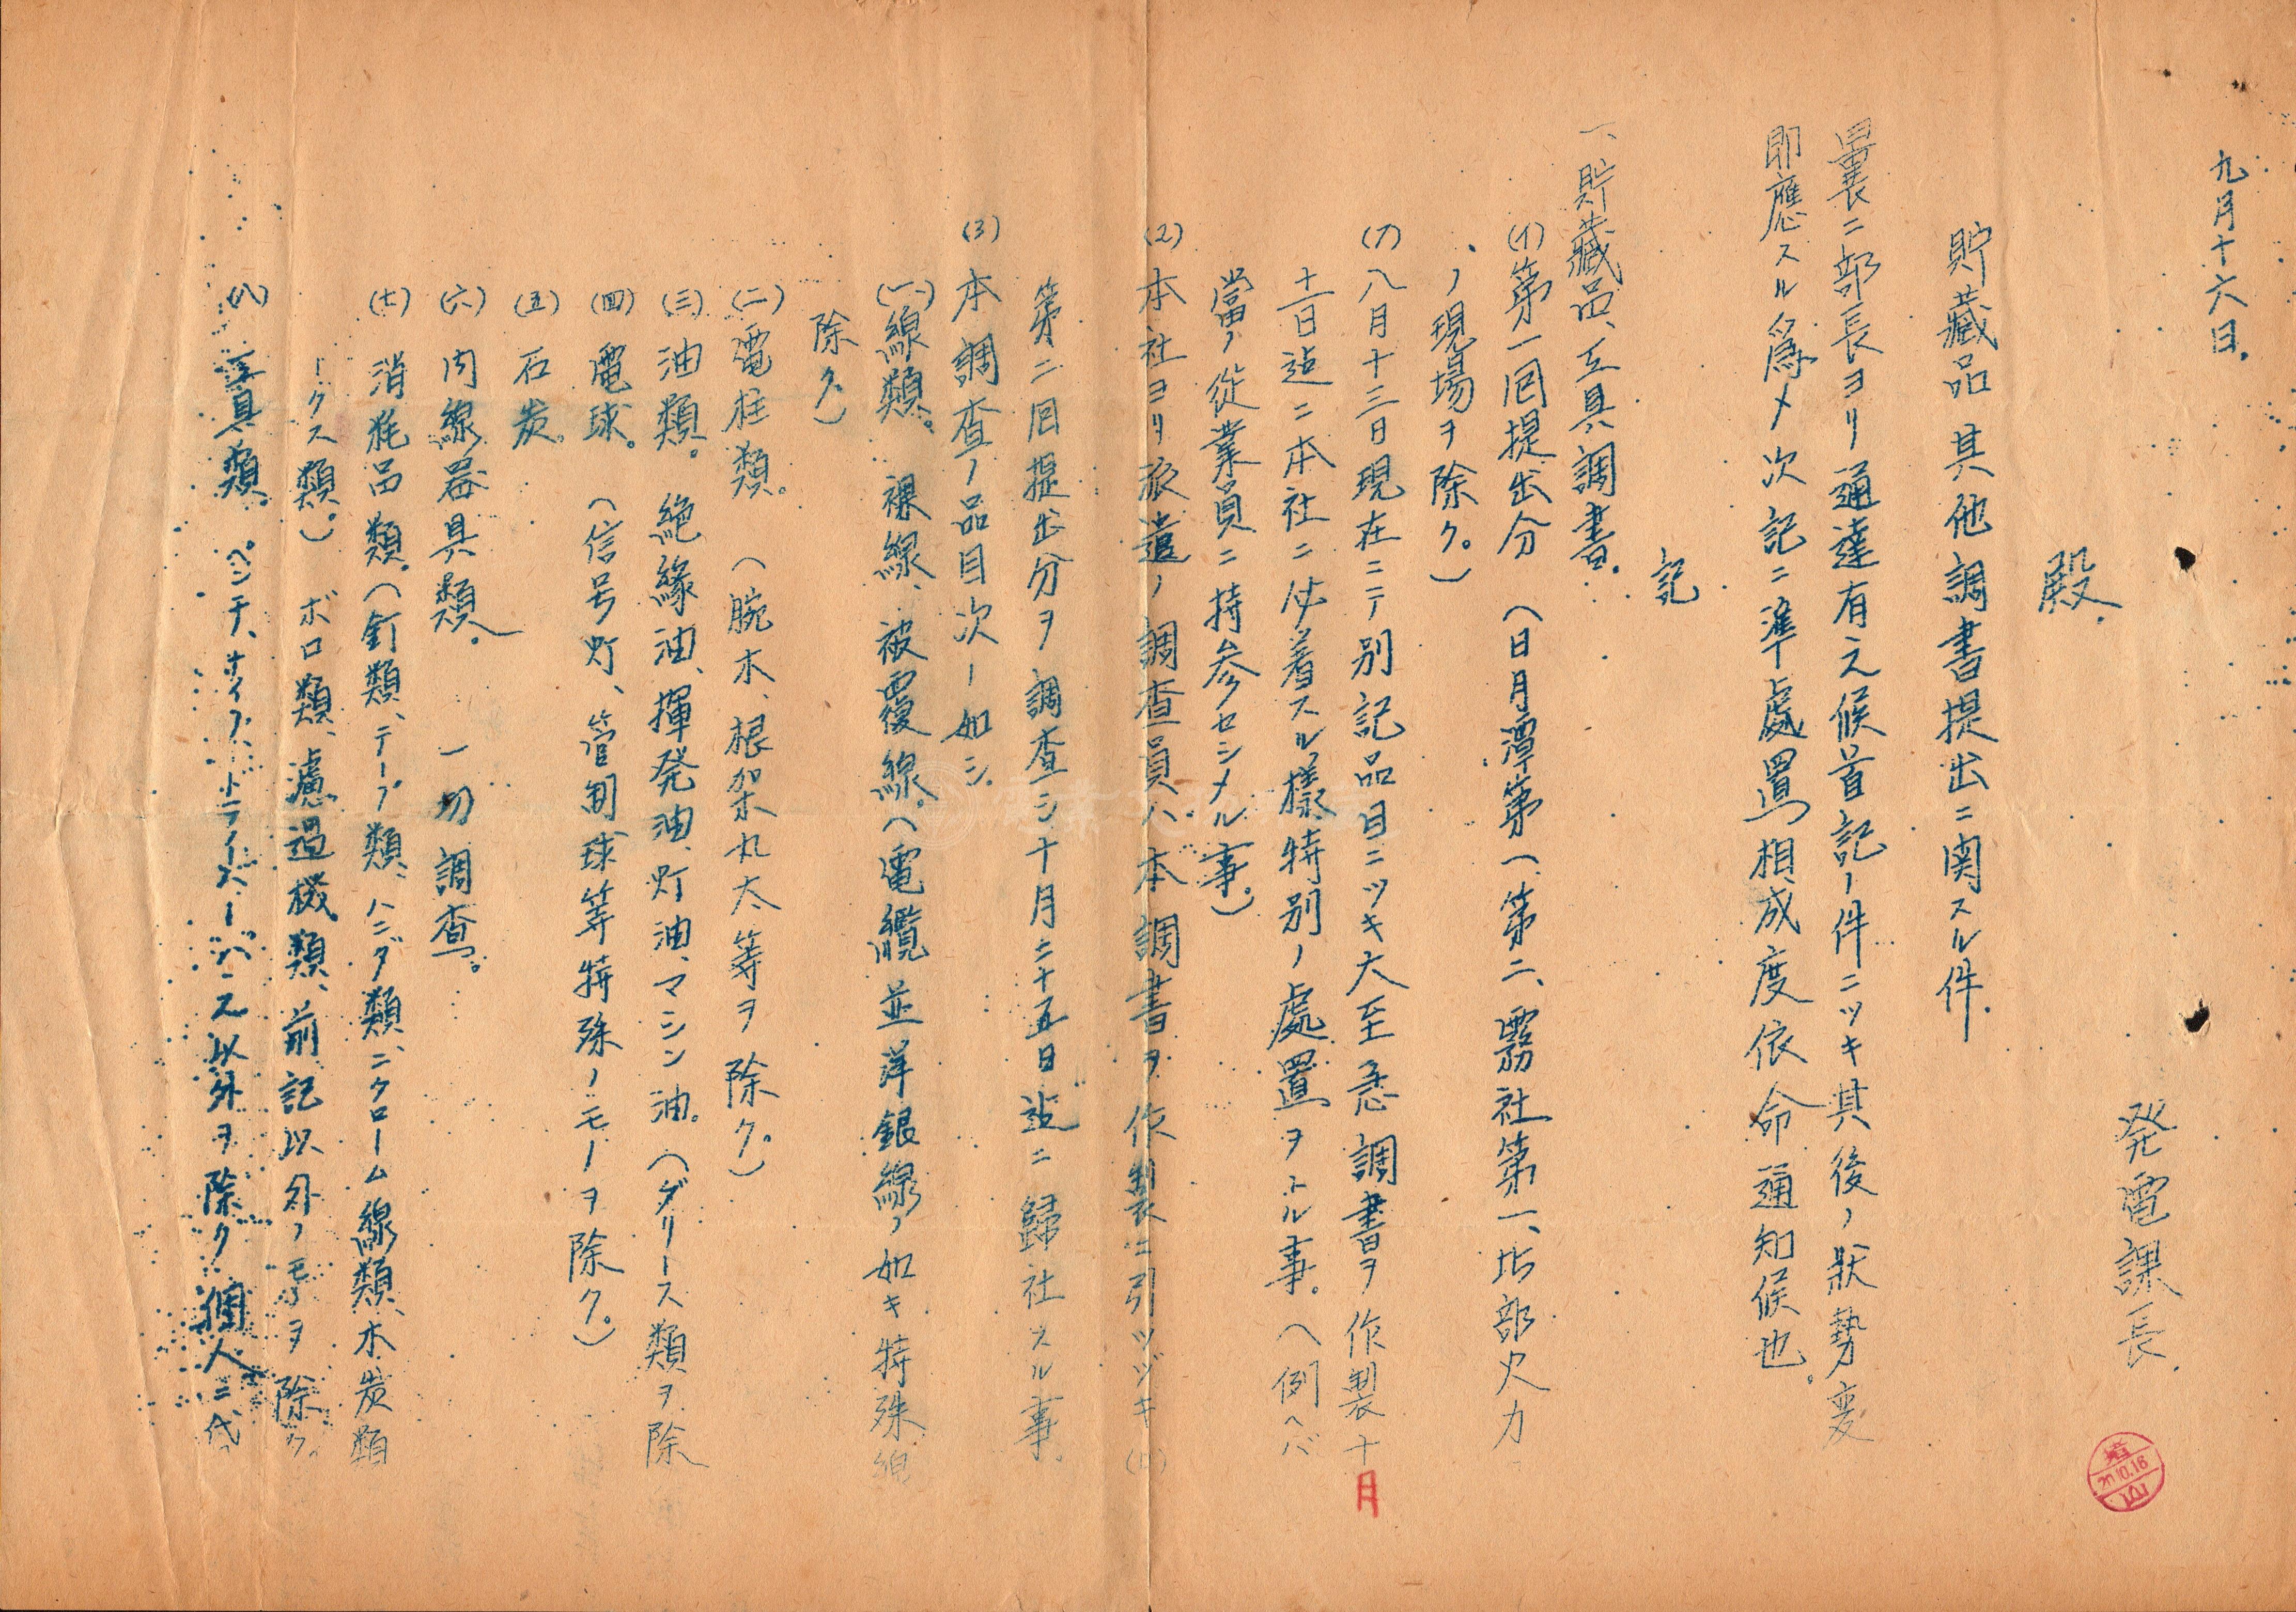 九月十六日.
発電課長.
殿.
貯藏品其他調書提出ニ関スル件.
曩ニ部長ヨリ通達有之候首記ノ件ニツキ其後ノ狀勢変
即應スル爲メ次記ニ準ジ處置相成度依命通知候也。
記
一、貯藏品、工具調書.
(イ)第一回提出分 (日月潭第一、第二、霧社第一、北部火力
ノ現場ヲ除ク。)
(1)八月十三日現在ニテ別記品目ニツキ大至急調書ヲ作製十月
十一日迠ニ本社ニ必着スル樣特別ノ處置ヲトル事。(例ヘバ
當ノ從業員ニ持参セシメル事。)
(2)本社ヨリ派遣ノ調査員ハ本調書ヲ作製ニ引ツヅキ(ロ)
第二回提出分ヲ調査シ十月二十五日迠ニ歸社スル事.
(3)本調査ノ品目次ノ如シ.
(一)線類。裸線、被覆線。(電纜並洋銀線ノ如キ特殊線
除ク)
(二)電柱類。(腕木、根架丸太等ヲ除ク。)
(三)油類。絶縁油、揮発油、灯油、マシン油。(グリース類ヲ除
(四)電球。(信号灯、管制球等特殊ノモノヲ除ク。)
(五)石炭。
(六)内線器具類。一切調査。
(七)消耗品類。(釘類、テープ類、ハンダ類、ニクローム線類、木炭類
ークス類。)ボロ類、濾過機類、前記以外ノモノヲ除ク。
(八)工具類。ペンチ、ナイフ、ドライバー、スパナ以外ヲ除ク個人ニ代
20.10.16